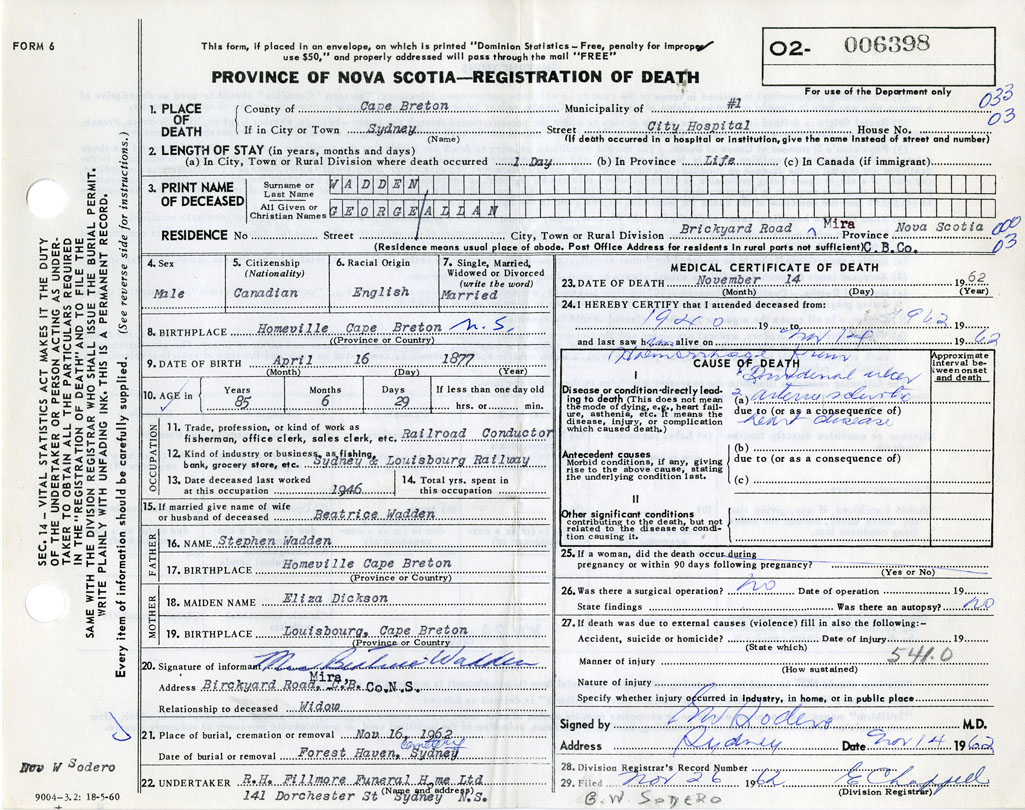 FORM 6
This form, if placed in an envelope, on which is printed "Dominion Statistics – Free, penalty for improper
use $50," and properly addressed will pass through the mail "FREE"
PROVINCE OF NOVA SCOTIA—REGISTRATION OF DEATH
O2- 006398
For use of the Department only
033
03
1. PLACE OF DEATH
County of Cape Breton Municipality of #1
If in City or Town Sydney Street City Hospital House No.
(Name) (If death occurred in a hospital or institution, give the name instead of street and number)
2. LENGTH OF STAY (in years, months and days)
(a) In City, Town or Rural Division where death occurred 1 Day (b) In Province Life (c) In Canada (if immigrant)
3. PRINT NAME OF DECEASED
Surname or Last Name WADDEN
All Given or Christian Names GEORGE/ALLAN
RESIDENCE No Street City, Town or Rural Division Brickyard Road, Mira Province Nova Scotia
000
03
(Residence means usual place of abode. Post Office Address for residents in rural parts not sufficient) C.B.Co.
4. Sex Male
5. Citizenship (Nationality) Canadian
6. Racial Origin English
7. Single, Married, Widowed or Divorced (write the word) Married
8. BIRTHPLACE Homeville Cape Breton N.S.
(Province or Country)
9. DATE OF BIRTH April 16 1877
(Month) (Day) (Year)
10. AGE in Years 85 Months 6 Days 29 If less than one day old hrs. or min.
OCCUPATION
11. Trade, profession, or kind of work as
fisherman, office clerk, sales clerk, etc. Railroad Conductor
12. Kind of industry or business, as fishing,
bank, grocery store, etc. Sydney & Louisbourg Railway
13. Date deceased last worked at this occupation 1946
14. Total yrs. spent in this occupation
15. If married give name of wife
or husband of deceased Beatrice Wadden
FATHER
16. NAME Stephen Wadden
17. BIRTHPLACE Homeville Cape Breton
(Province or Country)
MOTHER
18. MAIDEN NAME Eliza Dickson
19. BIRTHPLACE Louisbourg, Cape Breton
(Province or Country)
20. Signature of informant Mrs Beatrice Wadden
Address Birckyard Road, Mira, C.B. Co.N.S.
Relationship to deceased Widow
21. Place of burial, cremation or removal Nov 16, 1962
Date of burial or removal Forest Haven, Cemetery Sydney
22. UNDERTAKER R.H. Fillmore Funeral H.me Ltd
(Name and address)
141 Dorchester St Sydney N.S.
MEDICAL CERTIFICATE OF DEATH
23. DATE OF DEATH November 14 1962
(Month) (Day) (Year)
24. I HEREBY CERTIFY that I attended deceased from:
1940 19 to 1962 19
and last saw him alive on Nov 14 1962
Haemorrhage from
CAUSE OF DEATH
Approximate interval between onset and death
I
Duodenal ulcer
Disease or condition directly leading to death (This does not mean the mode of dying, e.g., heart failure, asthenia, etc. It means the disease, injury, or complication which caused death.)
(a) 2 arteriosclerotic
due to (or as a consequence of)
heart disease
Antecedent causes
Morbid conditions, if any, giving rise to the above cause, stating the underlying condition last.
(b)
due to (or as a consequence of)
(c)
II
Other significant conditions
contributing to the death, but not related to the disease or condition causing it.
25. If a woman, did the death occur during
pregnancy or within 90 days following pregnancy?
(Yes or No)
26. Was there a surgical operation? no Date of operation 19
State findings Was there an autopsy? no
27. If death was due to external causes (violence) fill in also the following:-
Accident, suicide or homicide? Date of injury 19
(State which)
541.0
Manner of injury
(How sustained)
Nature of injury
Specify whether injury occurred in industry, in home, or in public place
Signed by BW Sodero M.D.
Address Sydney Date Nov 14 1962
28. Division Registrar's Record Number
29. Filed Nov 26 1962 E Chappell
(Division Registrar)
B.W. SODERO
SEC. 14 – VITAL STATISTICS ACT MAKES IT THE DUTY
OF THE UNDERTAKER OR PERSON ACTING AS UNDER-
TAKER TO OBTAIN ALL THE PARTICULARS REQUIRED
IN THE "REGISTRATION OF DEATH" AND TO FILE THE
SAME WITH THE DIVISION REGISTRAR WHO SHALL ISSUE THE BURIAL PERMIT.
WRITE PLAINLY WITH UNFADING INK. THIS IS A PERMANENT RECORD.
Every item of information should be carefully supplied. (See reverse side for instructions.)
W Sodero
9004-3.2: 18-5-60